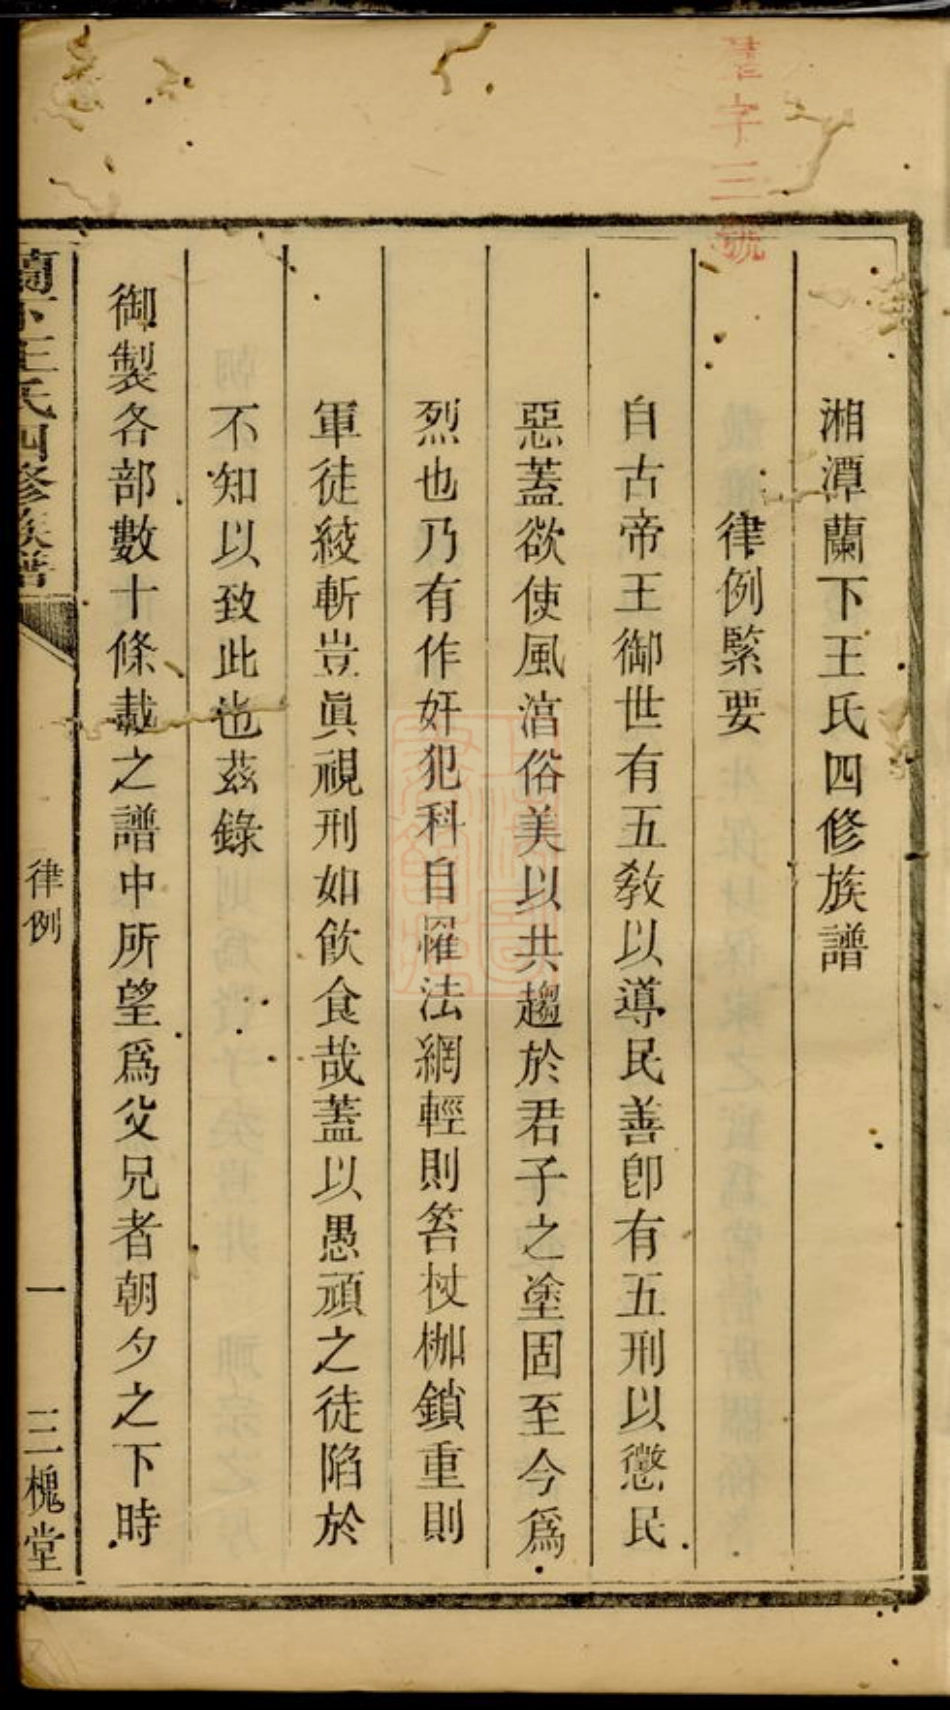 湘潭蘭下王氏四修族譜
律例緊要
自古帝王御世有五教以導民善卽有五刑以懲民
惡蓋欲使風湻俗美以共趨於君子之塗固至今爲
烈也乃有作奸犯科自罹法網輕則笞杖枷鎖重則
軍徒絞斬豈眞視刑如飲食哉蓋以愚頑之徒陷於
不知以致此也茲錄
御製各部數十條載之譜中所望爲父兄者朝夕之下時
蘭下王氏四修族譜
律例
一
三槐堂
字三號